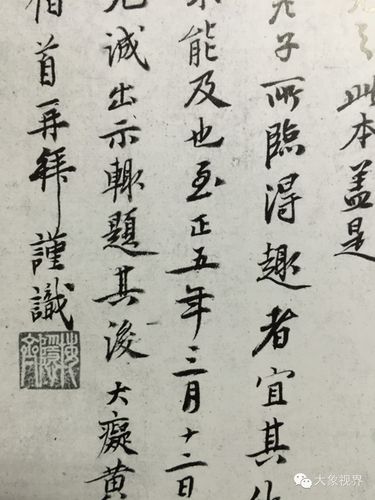 此本盖是
子所臨得趣者宜其
能及也至正五年三月十二日
誠出示輙題其後大癡黄
首再拜謹識
大象视界